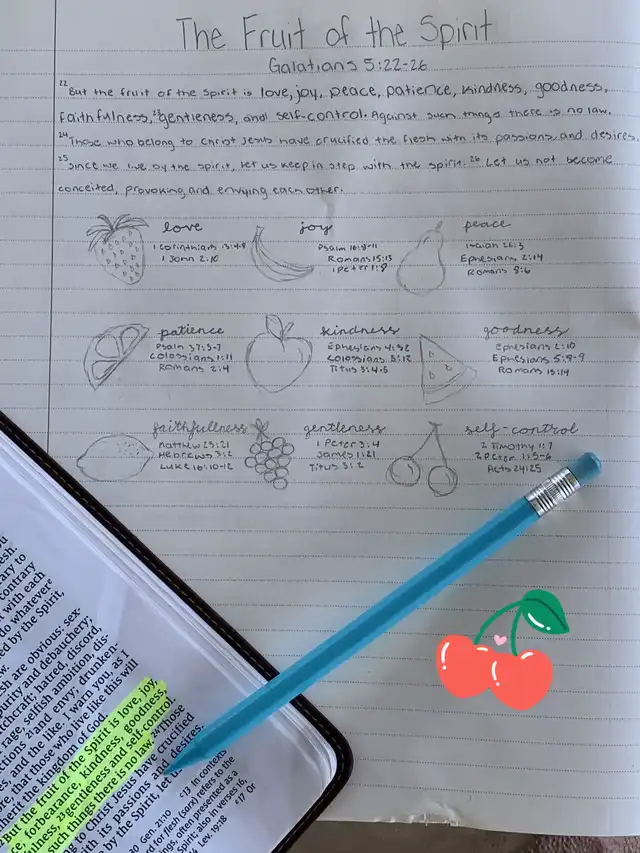 The Fruit of the Spirit
Galatians 5:22-26
22 But the fruit of the spirit is love, joy, peace, patience, kindness, goodness,
faithfulness, 23 gentleness, and self-control. Against such things there is no law.
24 Those who belong to Christ Jesus have crucified the flesh with its passions and desires.
25 Since we live by the spirit, let us keep in step with the spirit. 26 Let us not become
conceited, provoking and envying each other.
love
1 Corinthians 13:4-8
1 John 2:10
joy
Psalm 16:8-11
Romans 15:13
1 Peter 1:8
peace
Isaiah 26:3
Ephesians 2:14
Romans 8:6
patience
Psalm 37:3-7
Colossians 1:11
Romans 2:4
kindness
Ephesians 4:32
Colossians 3:12
Titus 3:4-5
goodness
Ephesians 2:10
Ephesians 5:8-9
Romans 15:14
faithfullness
Matthew 25:21
Hebrews 3:2
Luke 16:10-12
gentleness
1 Peter 3:4
James 1:21
Titus 3:2
self-control
2 Timothy 1:7
2 Peter 1:5-6
Acts 24:25
contrary
with each
do whatever
ed by the Spirit,
sh are obvious: sex-
purity and debauchery;
chcraft; hatred, discord,
rage, selfish ambition, dis-
and envy; drunken-
and the like. I warn you, as I
that those who live like this will
herit the kingdom of God.
But the fruit of the Spirit is love, joy,
forbearance, kindness, goodness,
23 gentleness and self-control.
such things there is no law. 24 Those
to Christ Jesus have crucified
with its passions and desires.
by the Spirit, let us
Gen. 21:10
c 13 In contexts
for flesh (sarx) refers to the
often presented as a
Spirit; also in verses 16,
Lev. 19:18
e 17 Or